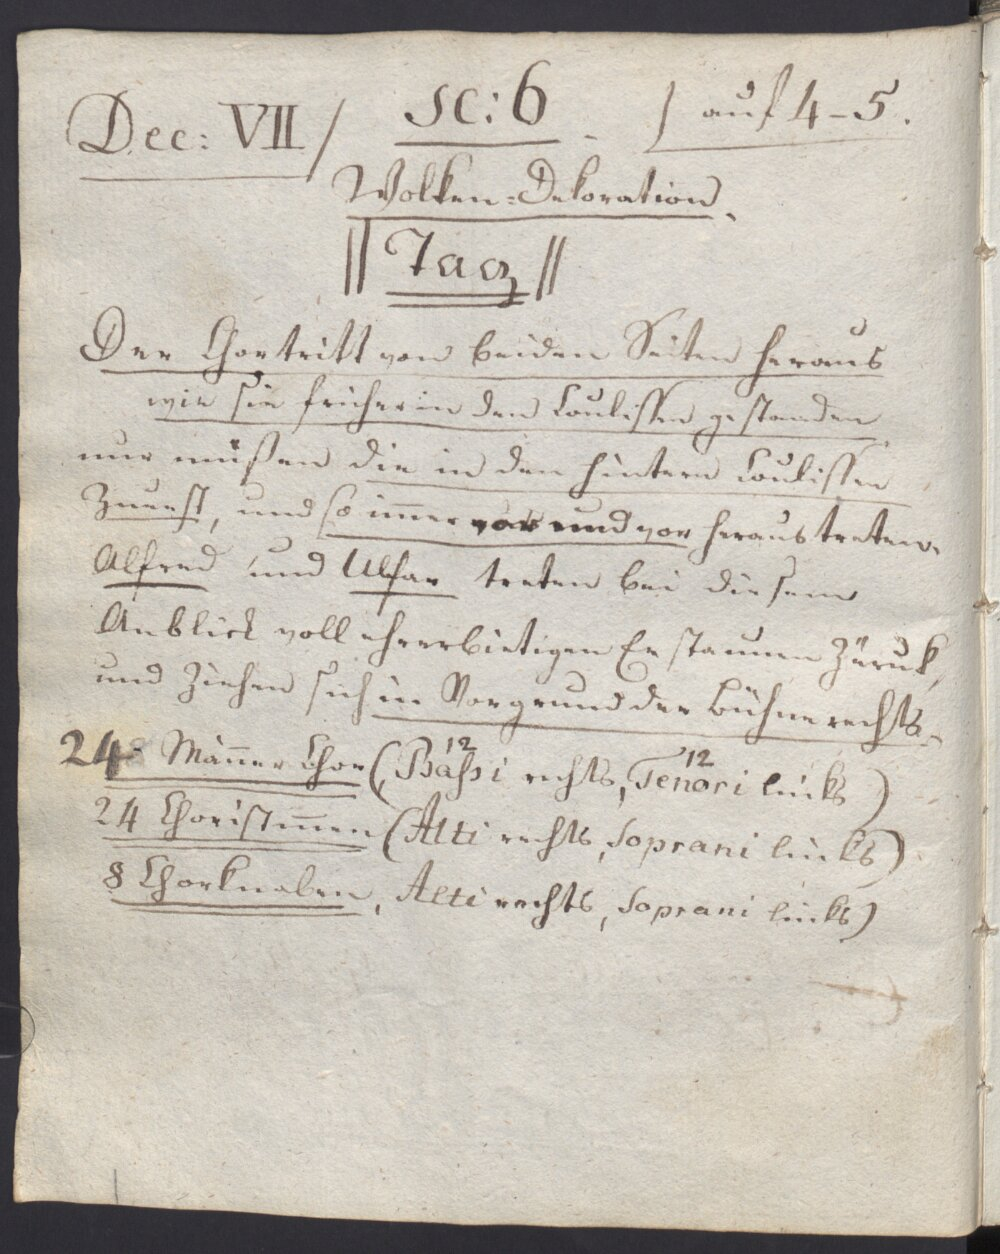 Dec: VII / sc: 6 / auf 4–5.
Wolken=Dekoration.
|| Tag ||
Der Chor tritt von beiden Seiten heraus
wie sie früher in den Coulissen gestanden
nur müßen die in den hintern Coulissen
Zuerst, und so immer vor und vor heraus treten.
Alfred und Ulfar treten bei diesem
Anblick voll ehrerbietigen Erstaunen Zurük,
und Ziehen sich in Vorgrund der Bühne rechts.
24 Männer Chor (12 Bassi rechts, 12 Tenori links)
24 Choristinnen (Alti rechts, Soprani links)
8 Chorknaben, Alti rechts, Soprani links)